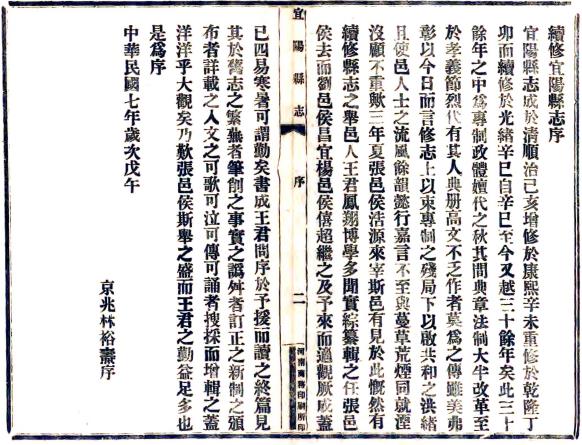 續修宜陽縣志序
宜陽縣志成於清順治己亥增修於康熙辛未重修於乾隆丁
卯而續修於光緒辛巳自辛巳至今又越三十餘年矣此三十
餘年之中為專制政體嬗代之秋其間典章法制大半改革至
於孝義節烈代有其人典册高文不乏作者莫為之傳雖美弗
彰以今日而言修志上以束專制之殘局下以啟共和之洪緒
且使邑人士之流風餘韻懿行嘉言不至與蔓草荒煙同就湮
沒顧不重歟三年夏張邑侯浩源來宰斯邑有見於此慨然有
續修縣志之舉邑人王君鳳翔博學多聞實綜纂輯之任張邑
侯去而劉邑侯昌宜楊邑侯僖超繼之及予來而適觀厥成蓋
宜陽縣志
序
二
河南商務印刷所印
已四易寒暑可謂勤矣書成王君問序於予援而讀之終篇見
其於舊志之繁蕪者筆削之事實之譌舛者訂正之新制之頒
布者詳載之人文之可歌可泣可傳可誦者搜採而增輯之蓋
洋洋乎大觀矣乃歎張邑侯斯舉之盛而王君之勤益足多也
是為序
中華民國七年歲次戊午
京兆林裕燾序